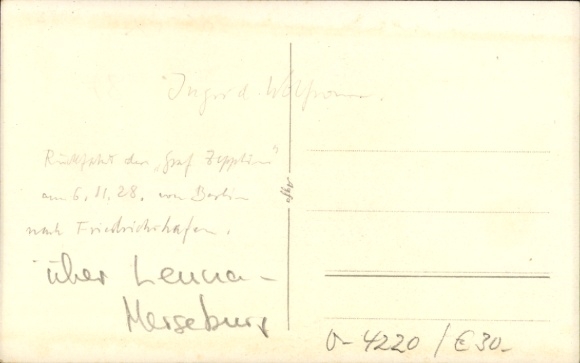 Ingrid Wolfram.
Rückfahrt des „Graf Zeppelin"
am 6.11.28. von Berlin
nach Friedrichshafen.
über Leuna-
Merseburg
Agfa
V-4220 / € 30-